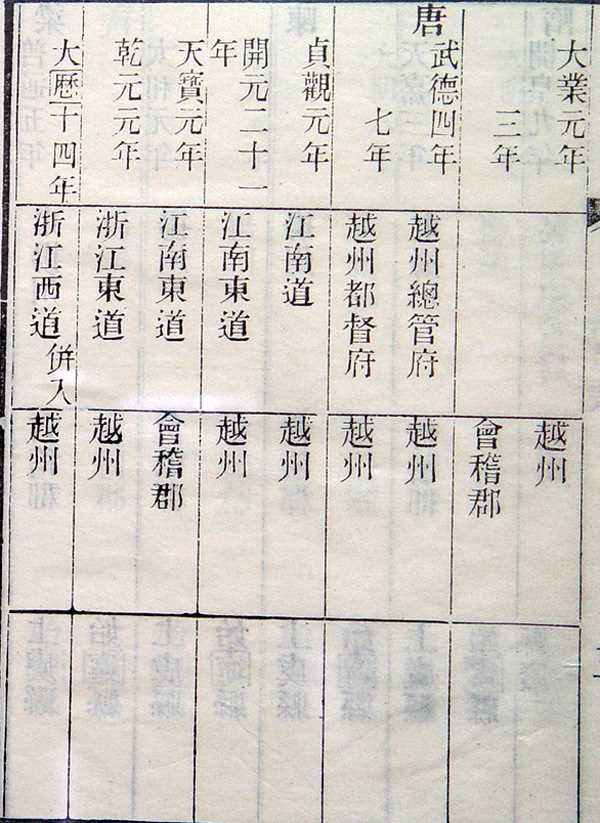 大業元年
越州
三年
會稽郡
唐
武德四年
越州總管府
越州
七年
越州都督府
越州
貞觀元年
江南道
越州
開元二十一
年
江南東道
越州
天寶元年
江南東道
會稽郡
乾元元年
浙江東道
越州
大曆十四年
浙江西道 併入
越州